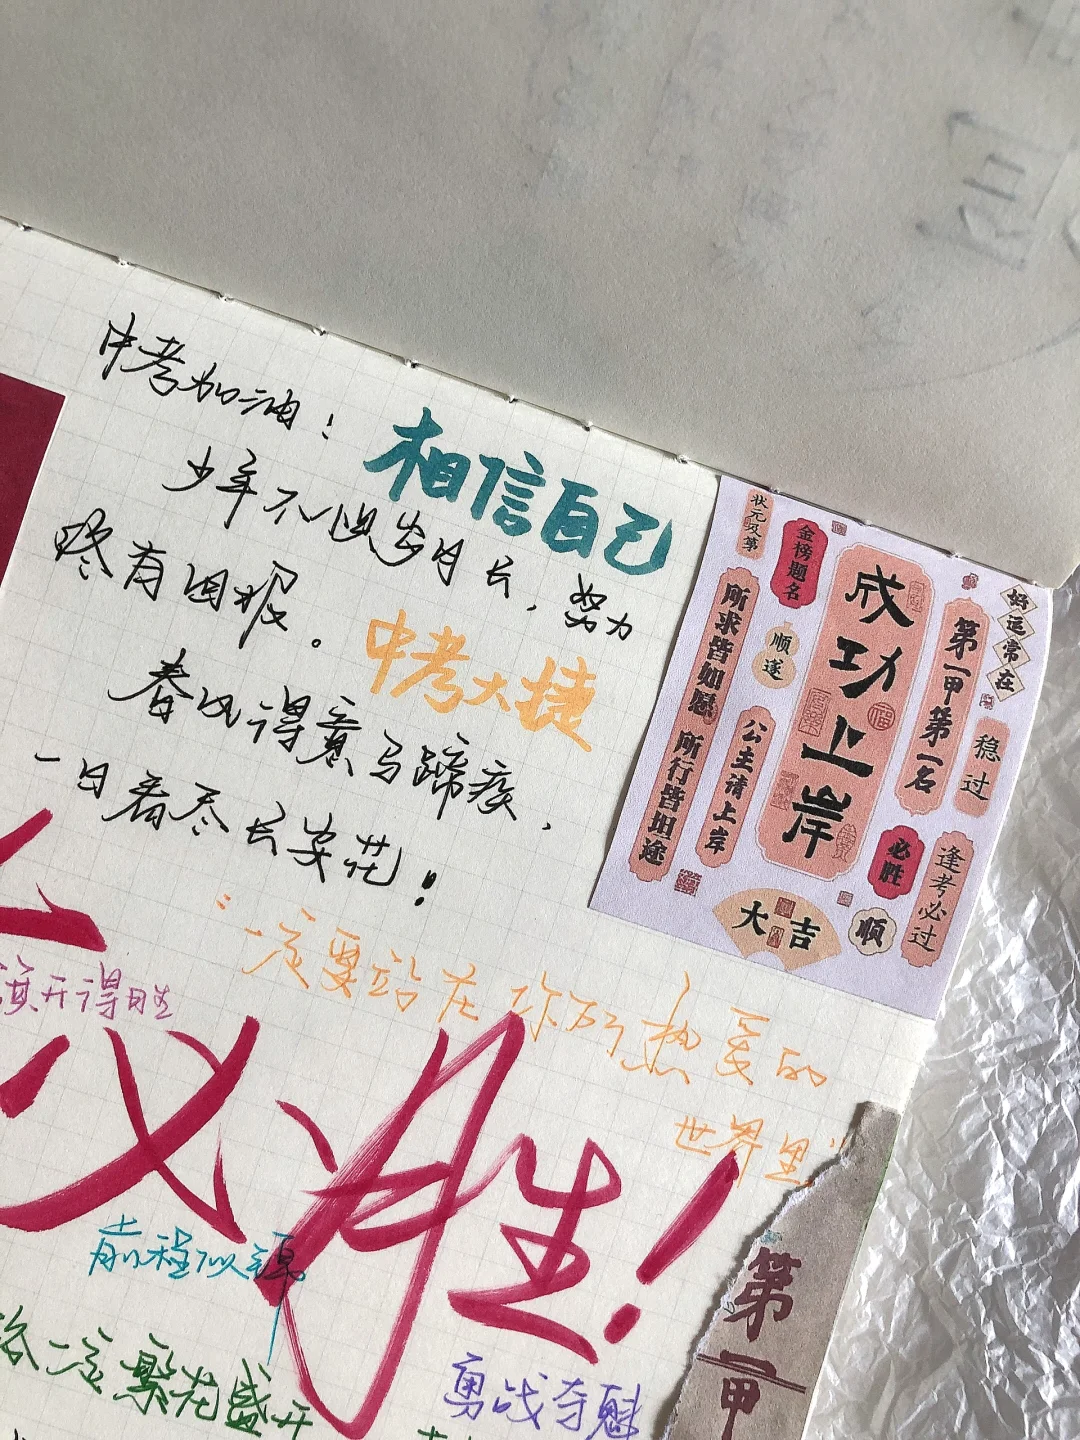 中考加油！
相信自己
少年不惧岁月长，努力
终有回报。
中考大捷
春风得意马蹄疾，
一日看尽长安花！
“一定要站在你所热爱的
世界里”
旗开得胜
必胜！
前程似锦
一定繁花盛开
勇战夺魁
状元及第
金榜题名
所求皆如愿 所行皆坦途
顺遂
公主请上岸
成功上岸
第一甲第一名
好运常在
稳过
必胜
逢考必过
大吉
顺
第一甲